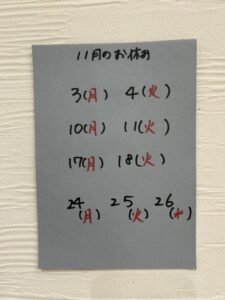 11月のお休み
3(月) 4(火)
10(月) 11(火)
17(月) 18(火)
24 25 26
(月) (火) (水)